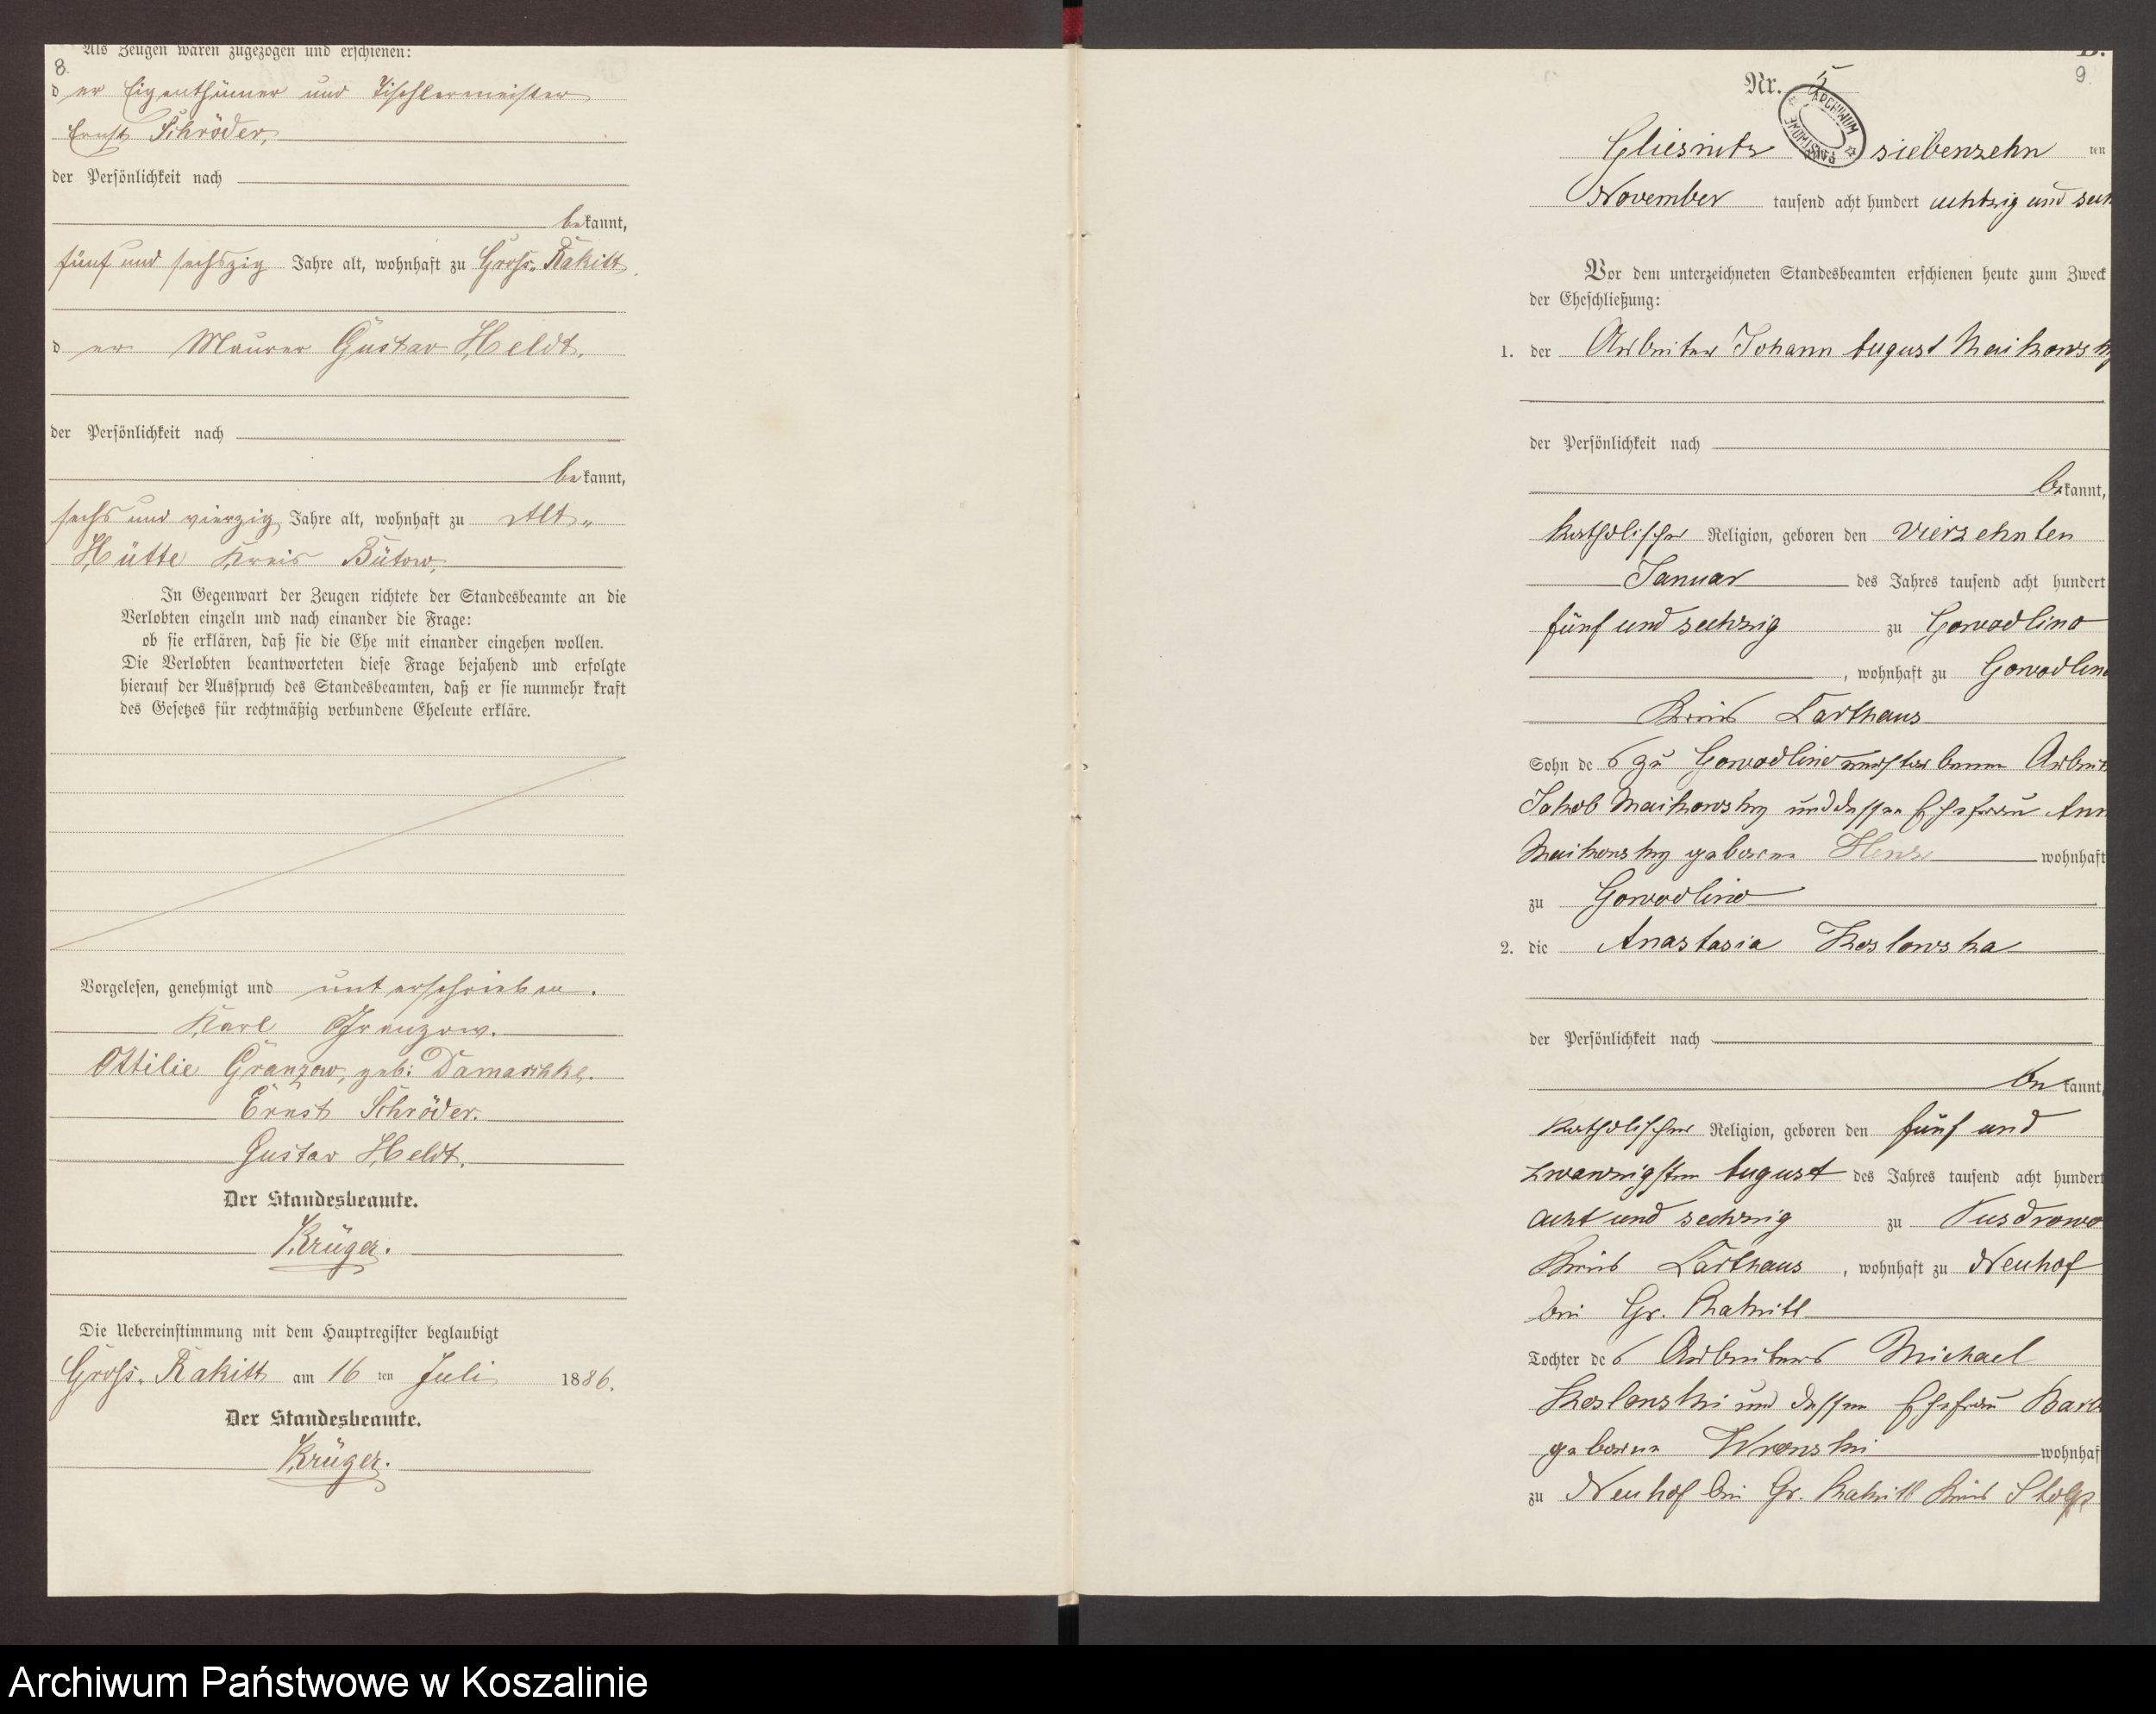 Als Zeugen waren zugezogen und erschienen:
8.
d er Eigenthümer und Tischlermeister
Ernst Schröder,
der Persönlichkeit nach
bekannt,
fünf und sechszig Jahre alt, wohnhaft zu Gross-Rakitt
d er Maurer Gustav Heldt.
der Persönlichkeit nach
bekannt,
sechs und vierzig Jahre alt, wohnhaft zu Alt-
Hütte Kreis Bütow,
In Gegenwart der Zeugen richtete der Standesbeamte an die
Verlobten einzeln und nach einander die Frage:
ob sie erklären, daß sie die Ehe mit einander eingehen wollen.
Die Verlobten beantworteten diese Frage bejahend und erfolgte
hierauf der Ausspruch des Standesbeamten, daß er sie nunmehr kraft
des Gesetzes für rechtmäßig verbundene Eheleute erkläre.
Vorgelesen, genehmigt und unterschrieben.
Karl Granzow.
Ottilie Granzow, geb: Damaschke.
Ernst Schröder.
Gustav Heldt.
Der Standesbeamte.
Krüger.
Die Uebereinstimmung mit dem Hauptregister beglaubigt
Gross-Rakitt am 16 ten Juli 1886.
Der Standesbeamte.
Krüger.
B.
9.
Nr. 5
ARCHIWUM PAŃSTWOWE
Gliesnitz siebenzehn ten
November tausend acht hundert achtzig und sech
Vor dem unterzeichneten Standesbeamten erschienen heute zum Zweck
der Eheschließung:
1. der Arbeiter Johann August Maikowsky
der Persönlichkeit nach
bekannt,
katholischer Religion, geboren den vierzehnten
Januar des Jahres tausend acht hundert
fünf und sechzig zu Gowodlino
, wohnhaft zu Gowodlino
Kreis Carthaus
Sohn de s zu Gowodlino verstorbenen Arbeit
Jakob Maikowsky und dessen Ehefrau Ann
Maikowsky geborene wohnhaft
zu Gowodlino
2. die Anastasia Koslowska
der Persönlichkeit nach
bekannt,
katholischer Religion, geboren den fünf und
zwanzigsten August des Jahres tausend acht hundert
acht und sechzig zu Pusdrowo
Kreis Carthaus, wohnhaft zu Neuhof
bei Gr. Rakitt
Tochter de s Arbeiters Michael
Koslowski und dessen Ehefrau Barb
geborene Wronski wohnhaf
zu Neuhof bei Gr. Rakitt Kreis Stolp
Archiwum Państwowe w Koszalinie